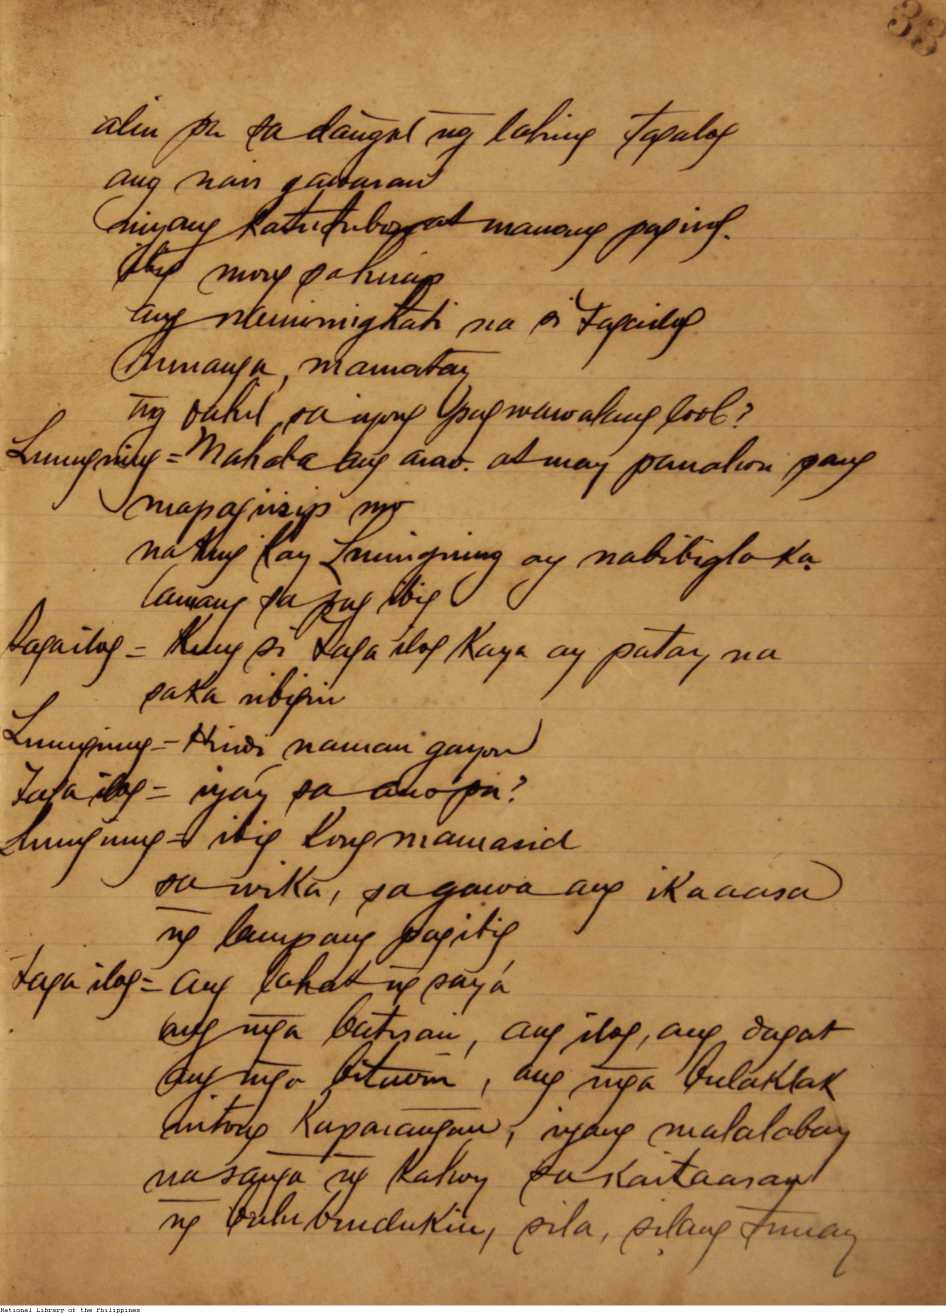 33
alin pa sa dangal ng lahing Tagalog
ang nais gawaran
niyang katutubo at manang pagirog.
ibig mong sahirap
ang namimighati na si Tagailog
mamatay
ng dahil sa iyong pagwawalang loob?
Luningning = Mahaba ang arao. at may panahon pang
mapagiisip mo
na kung kay Luningning ay nabibigla ka
lamang sa pag ibig
Tagailog = Kung si Taga ilog kaya ay patay na
saka iibigin
Luningning = Hindi naman gayon
Taga ilog = iyáy sa ano pa?
Luningning = ibig kong mamasid
sa wika, sa gawa ang ikaaasa
ng lampang pagibig
Taga ilog = ang lahat ng sayá
ang mga batisan, ang ilog, ang dagat
ang mga bituin, ang mga bulaklak
nitong kaparangan, iyang malalabay
na sanga ng kahoy sa kaitaasan
ng bulubundukin, sila, silang tunay
National Library of the Philippines